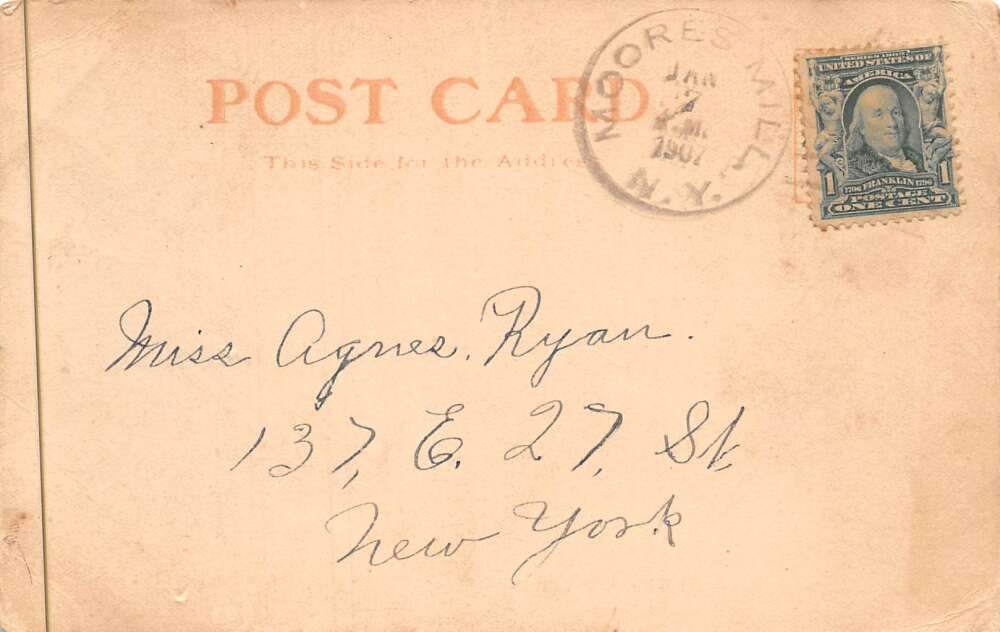 POST CARD
This Side for the Address
MOORES MILL, N.Y.
JAN
7
A.M.
1907
SERIES 1902
UNITED STATES OF
AMERICA
1 1706 FRANKLIN 1790 1
POSTAGE
ONE CENT
Miss Agnes. Ryan.
137, E. 27, St,
New York